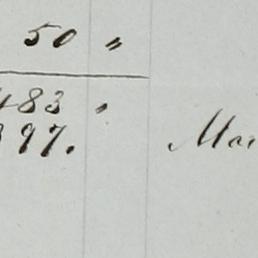 50 "
483 "
397. Mar